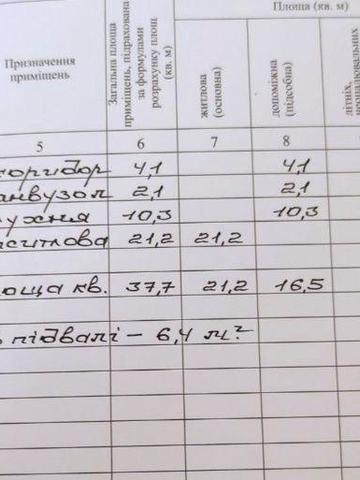 Площа (кв. м)
Призначення
приміщень
Загальна площа
приміщень, підрахована
за формулами
розрахунку площ
(кв. м)
житлова
(основна)
допоміжна
(підсобна)
літніх,
5 6 7 8
оридор 4,1 4,1
анвузол 2,1 2,1
ухня 10,3 10,3
житлова 21,2 21,2
лоща кв. 37,7 21,2 16,5
підвалі – 6,4 м²